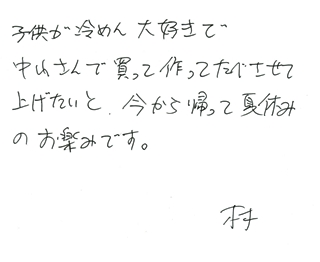 子供が冷めん大好きで
中山さんで買って作ってたべさせて
上げたいと、今から帰って夏休み
のお楽みです。
村